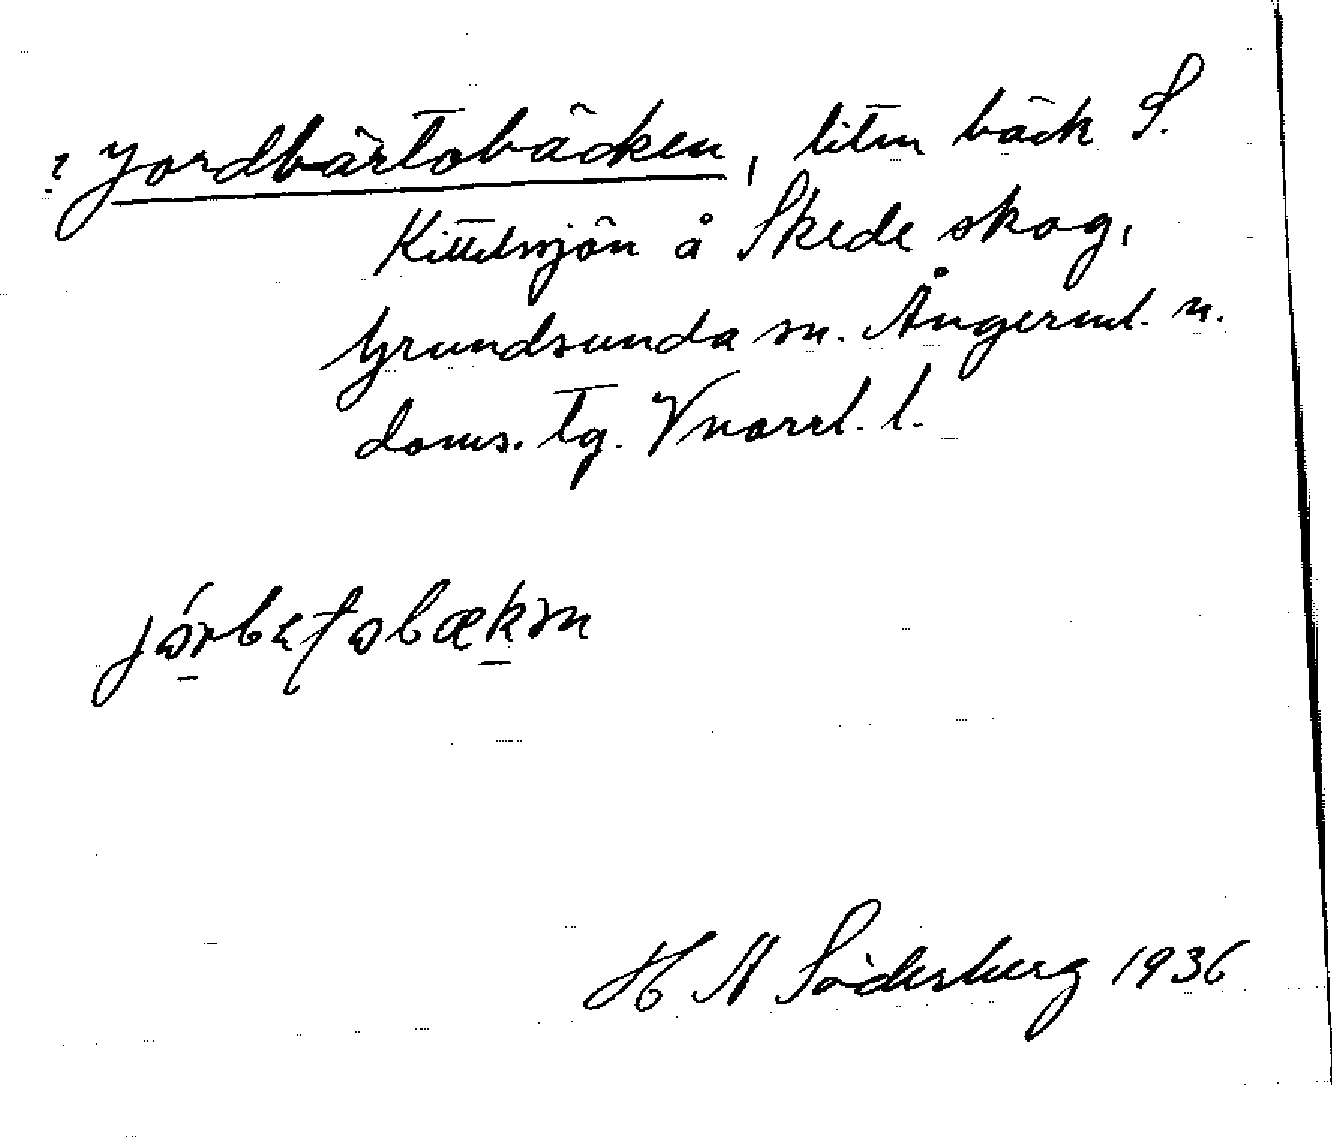 ? Jordbärtobäcken, liten bäck S.
Kittelsjön å Skede skog,
Grundsunda sn. Ångerml. n.
doms. tg. Vnorrl. l.
H N Söderberg 1936